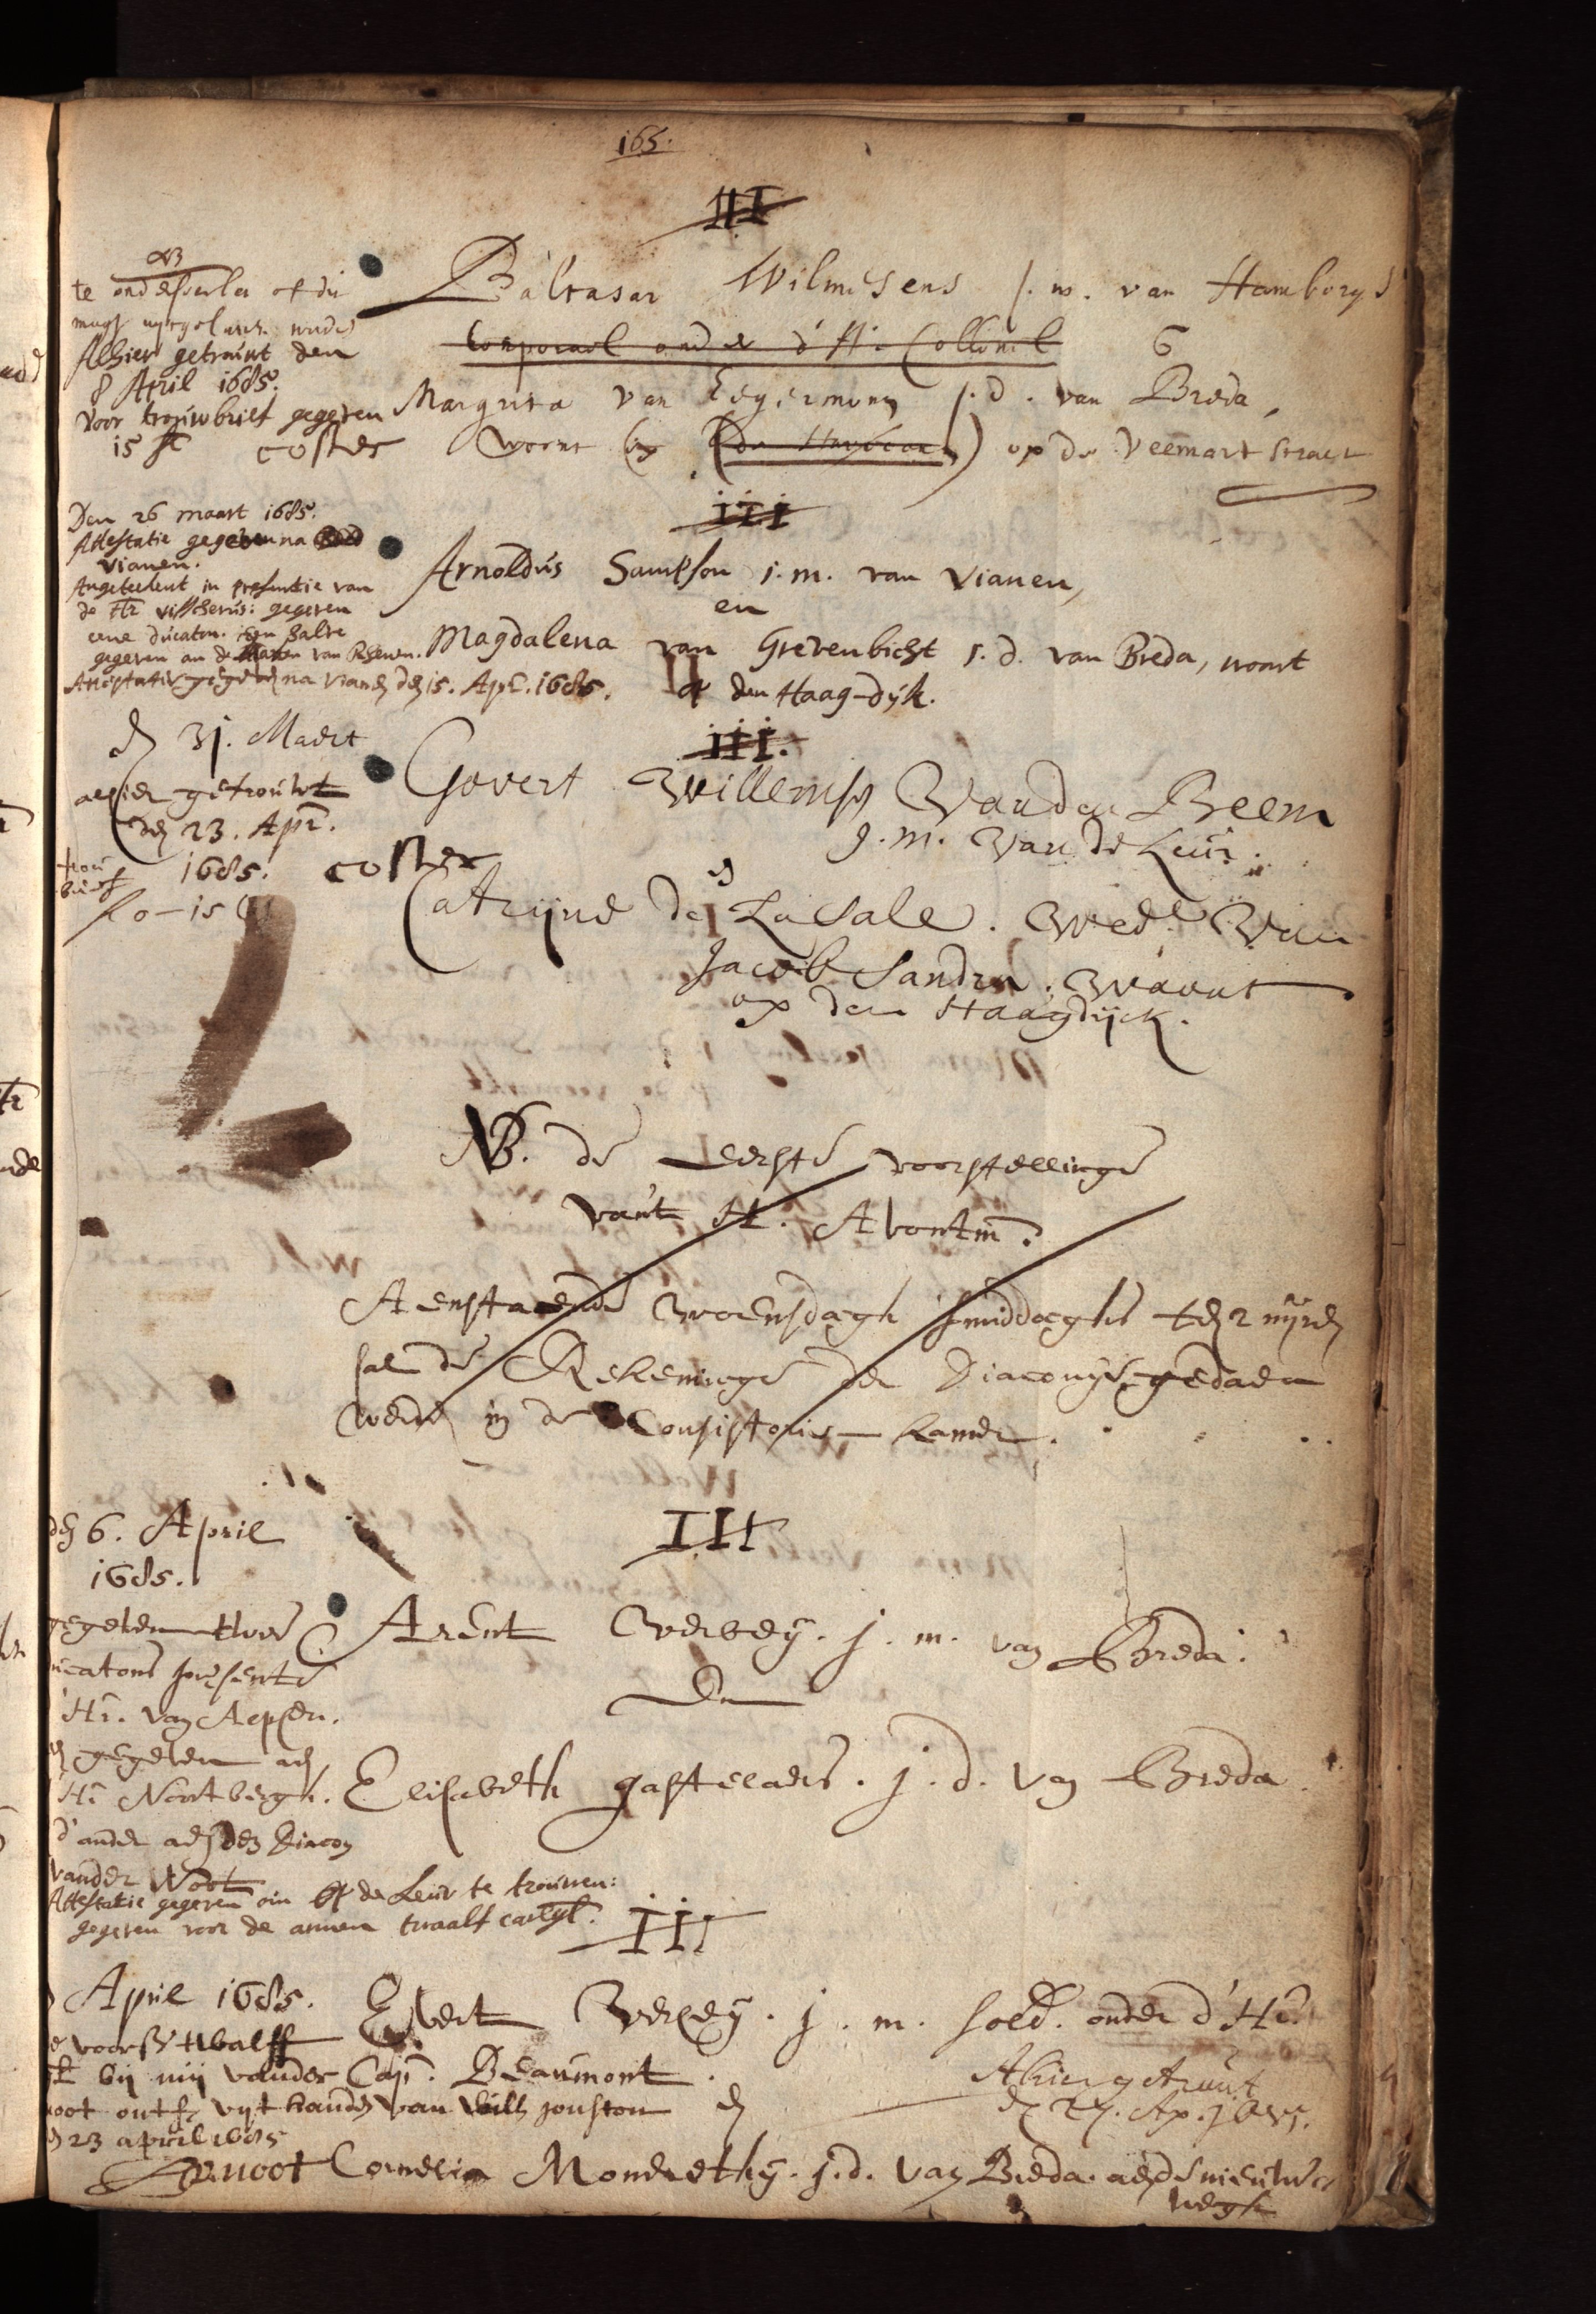 165.
III
NB
te onderstaen of die
mogt uytgelaten werde
Alhier getrouwt den
8 April 1685.
Voor trouwbrief gegeven
15 st coster
Baltasar Wilmsens j. m. van Hamborgs
Corporael onder d'Hr. Collonel
6
Margrita van j. d. van Breda,
woont op op de Veemart straet
Den 26 maart 1685.
Attestatie gegeven na
Vianen.
Angeteekent in presentie van
de Hr visscherus: gegeven
eene ducaton. een halve
gegeven an de van Rhenen.
Attestatie gegeven na Vianen den 15. Apr. 1685.
III
Arnoldus Sampson j. m. van Vianen,
en
Magdalena van Grevenbicht j. d. van Breda, woont
op den Haag-dyk.
den 31. Maert
alhier getrouwt
den 23. Apr.
1685. coster
trou
brief
f 0 - 15
III.
Govert Willemsen Van den Breem
J. m. Van de Leur.
en
Catrijne de La Sale. Wede Van
Jacob Sandra. Woont
op den Haagdijck.
NB. de eerste voorstellinge
van't H. Avontm.
Aenstaende Woensdagh smiddaghs ten 2 uyren
sal de Rekeninge der Diaconye gedaen
werden in de Consistorie-kamer.
III
den 6. April
1685.
gegeven twee
ducatons presente
d'Hr. van Aepsen.
gegeven aen
Hr Nontbergh.
d'ander aen den Diacon
vander Noot
Attestatie gegeven om op de Leur te trouwen:
gegeven voor de armen twaalf car. gl.
Arent Verveij. j. m. van Breda.
En
Elisabeth gastelaers. j. d. van Breda.
III
April 1685.
de voorsz twalff
bij mij vander
noot ontf. uyt handen van Will jonston
den 23 april 1685
vnoot
Evert Verheij. j. m. sold. onder d'Hr.
Capt. Beaumont.
en
Alhier getrout
den 24. Ap. 1685.
Cornelia Monderthij. j. d. van Breda. aen de nieuwe
wegh